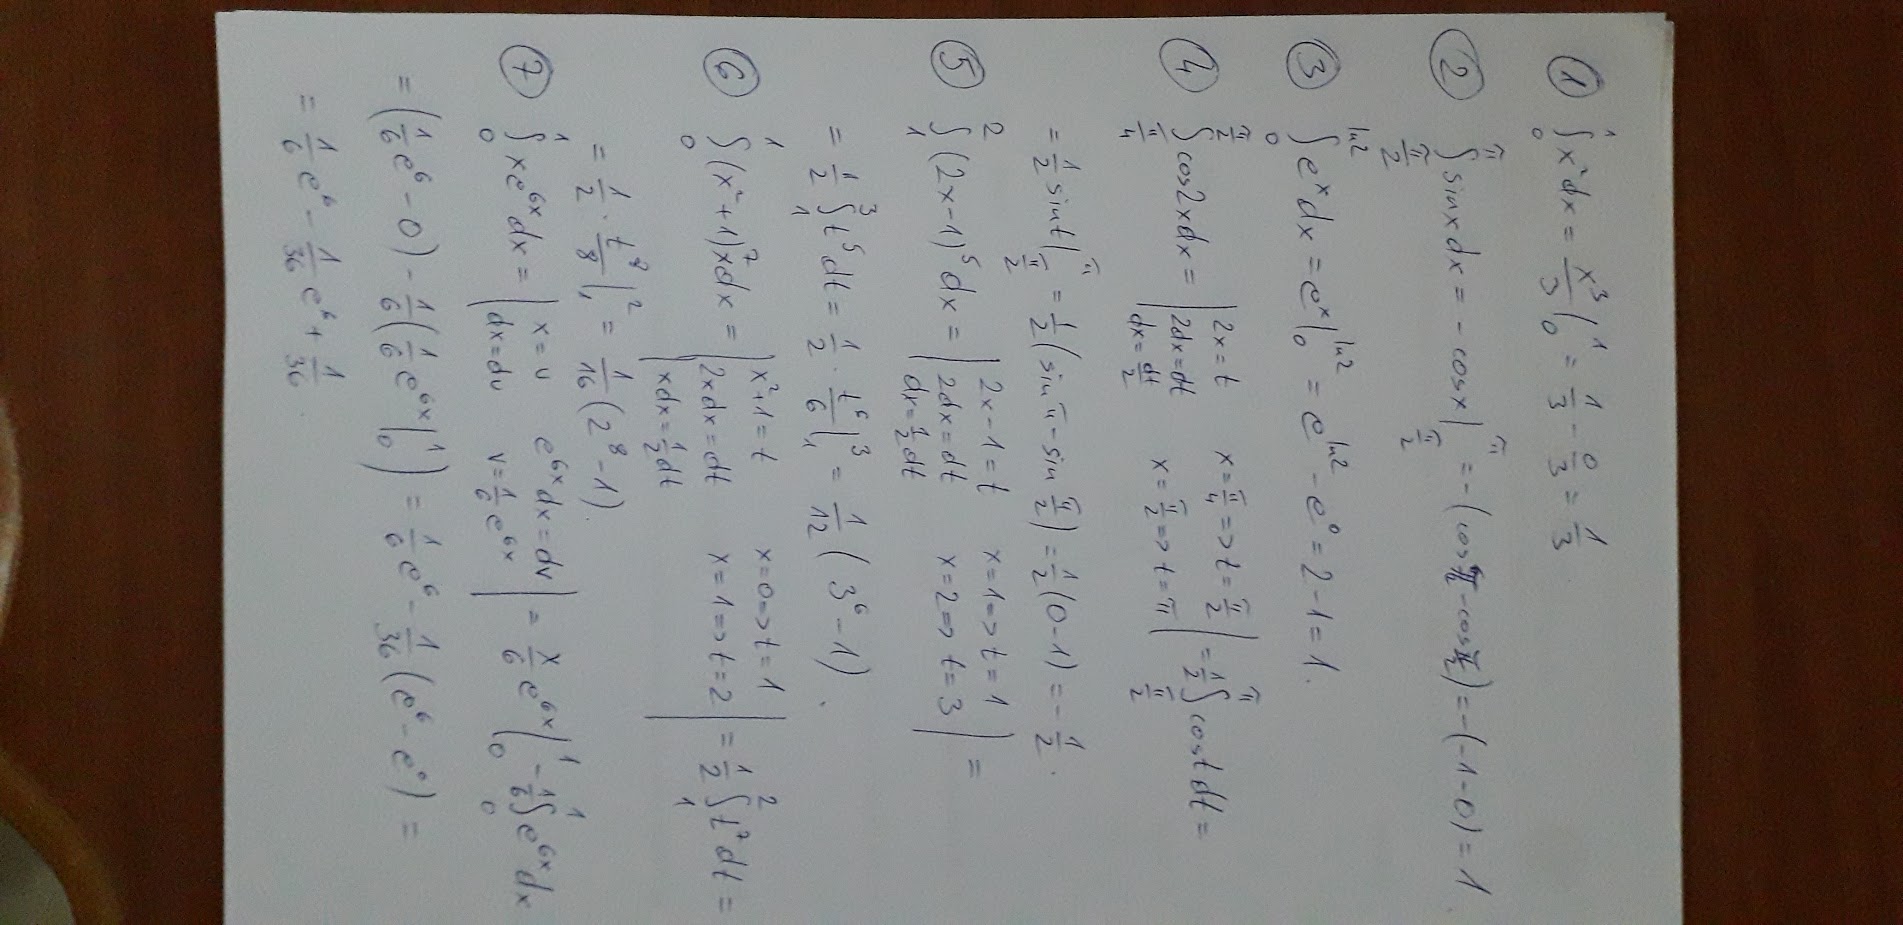 ① ∫₀¹ x²dx = x³/3 |₀¹ = 1/3 - 0/3 = 1/3
② ∫_{π/2}^{π} sinxdx = -cosx |_{π/2}^{π} = -(cosπ - cos π/2) = -(-1-0) = 1
③ ∫₀^{ln2} eˣdx = eˣ |₀^{ln2} = e^{ln2} - e⁰ = 2-1 = 1.
④ ∫_{π/4}^{π/2} cos2xdx = | 2x = t   x = π/4 => t = π/2   2dx = dt   x = π/2 => t = π   dx = dt/2 | = 1/2 ∫_{π/2}^{π} cost dt =
= 1/2 sint |_{π/2}^{π} = 1/2 (sin π - sin π/2) = 1/2 (0-1) = -1/2.
⑤ ∫₁² (2x-1)⁵ dx = | 2x-1 = t   x=1 => t=1   2dx = dt   x=2 => t=3   dx = 1/2 dt | =
= 1/2 ∫₁³ t⁵dt = 1/2 · t⁶/6 |₁³ = 1/12 (3⁶-1).
⑥ ∫₀¹ (x²+1)⁷xdx = | x²+1 = t   x=0 => t=1   2xdx = dt   x=1 => t=2   xdx = 1/2 dt | = 1/2 ∫₁² t⁷dt =
= 1/2 · t⁸/8 |₁² = 1/16 (2⁸-1).
⑦ ∫₀¹ xe^{6x}dx = | x = u   e^{6x}dx = dv   dx = du   v = 1/6 e^{6x} | = x/6 e^{6x} |₀¹ - 1/6 ∫₀¹ e^{6x}dx
= (1/6 e⁶ - 0) - 1/6 (1/6 e^{6x} |₀¹) = 1/6 e⁶ - 1/36 (e⁶ - e⁰) =
= 1/6 e⁶ - 1/36 e⁶ + 1/36